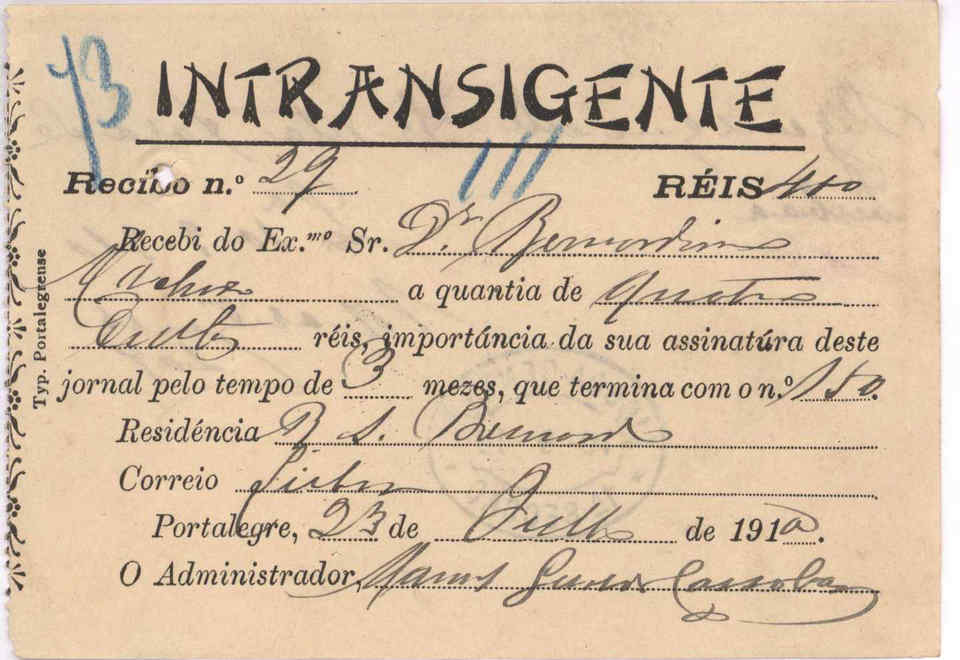 73
INTRANSIGENTE
111
Recibo n.º 29 RÉIS 400
Recebi do Ex.mo Sr. Dr Bernardino
Machado a quantia de quatro
réis, importáncia da sua assinatúra deste
jornal pelo tempo de 3 mezes, que termina com o n.º 150.
Residéncia R S. Bernardo
Correio Lisboa
Portalegre, 23 de de 1910.
O Administrador,
Typ. Portalegrense